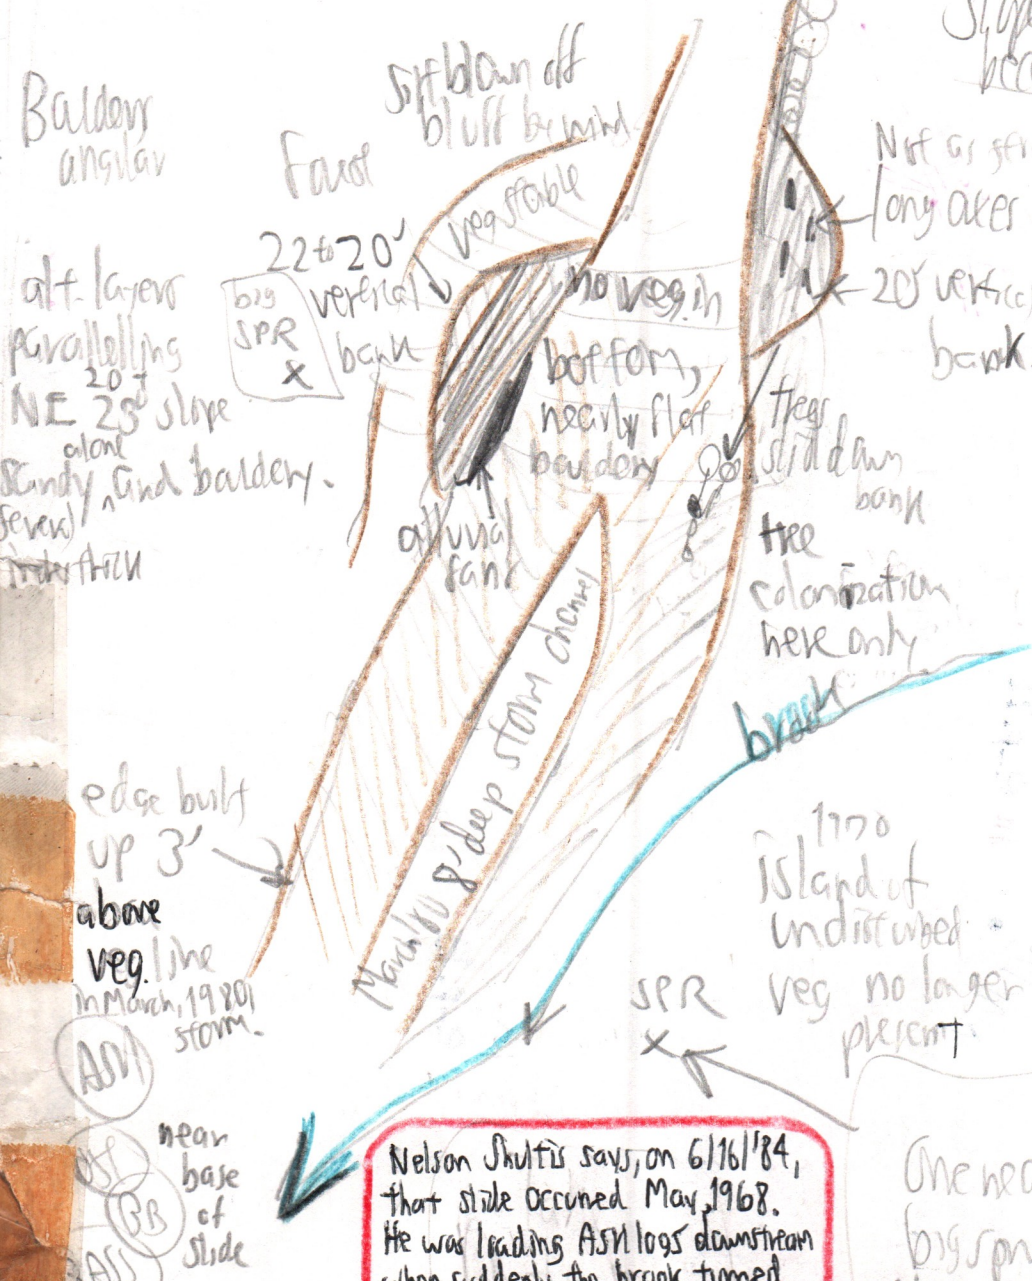 Slope
Silt blown off
bluff by wind
Baldery
angular
Face
veg stable
Not as
long axes
22 to 20'
vertical
bank
big
SPR
x
no veg. in
bottom,
nearly flat
bouldery
20' vertical
bank
alt. layers
parallelling
20+
NE 25° slope
alone
sandy, and bouldery.
several
thick
trees
slid down
bank
alluvial
fans
tree
colonization
here only
brook
March '80 8' deep storm channel
edge built
up 3'
above
veg. line
in March, 1980,
storm.
1970
island of
undisturbed
veg no longer
present
SPR
x
ASH
near
base
of
slide
BB
Nelson Shultis says, on 6/16/'84,
that slide occured May, 1968.
He was loading ASH logs downstream
when suddenly the brook turned
One
big